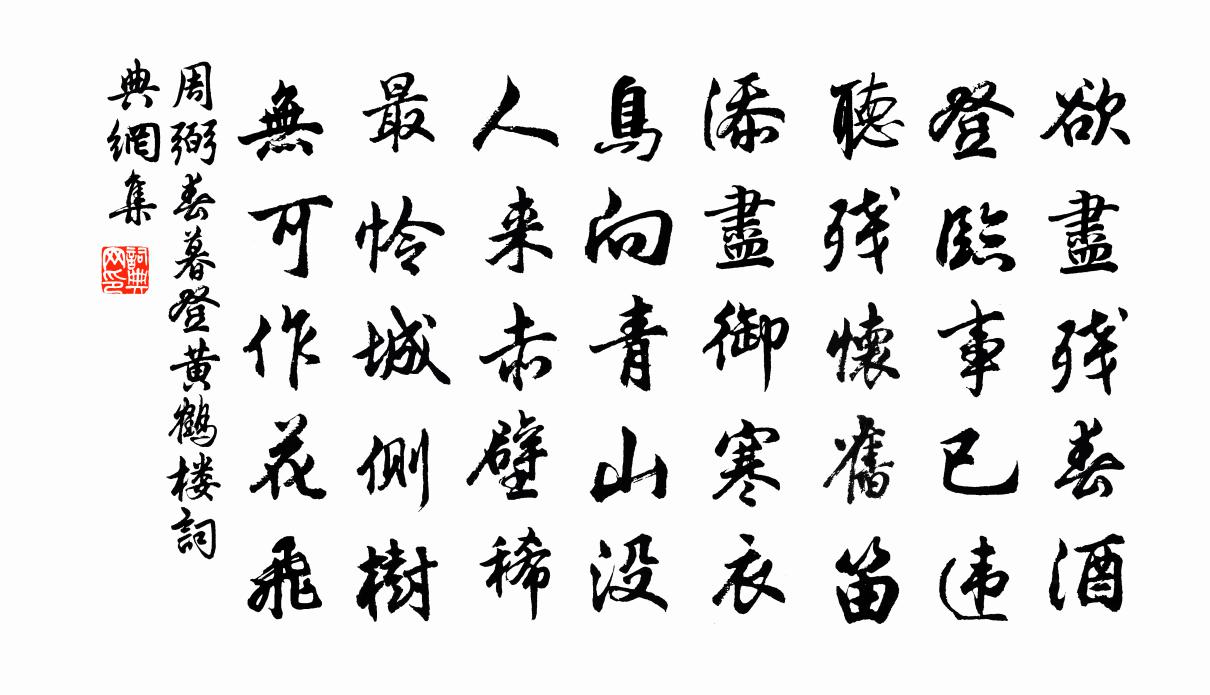 欲盡残春酒
登臨事已违
聽残懷舊笛
添盡御寒衣
鳥向青山没
人来赤壁稀
最怜城側樹
無可作花飛
周弼春暮登黄鶴楼詞
典網集
詞典网印